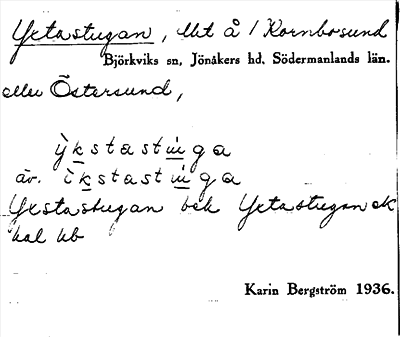 Yxtastugan, lht å / Kornbosund
Björkviks sn, Jönåkers hd, Södermanlands län.
eller Östersund,
ỳkstastuga
äv. ìkstastuga
Yxstastugan bek Yxtastugan ek
hal hb
Karin Bergström 1936.